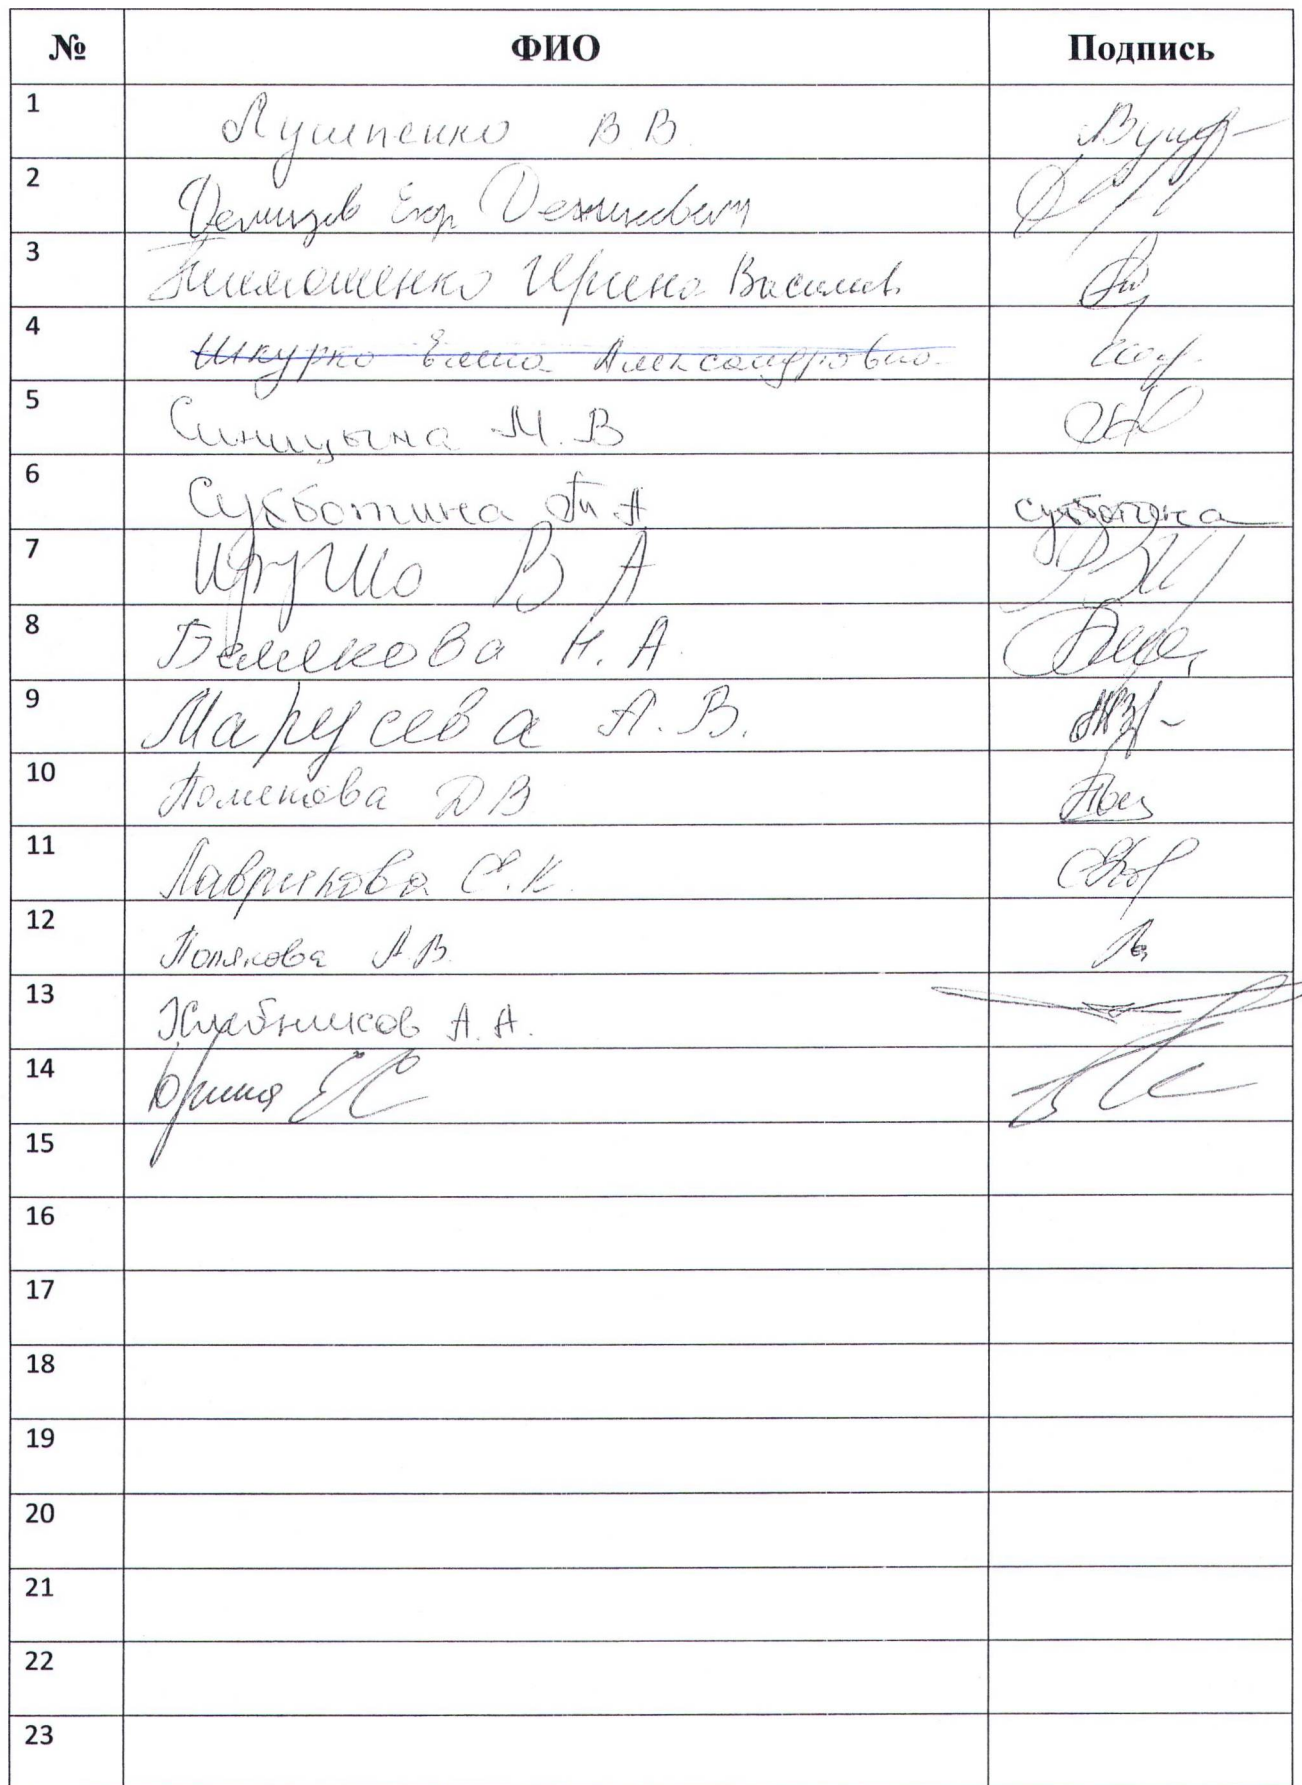 № ФИО Подпись
1 Лушпенко В В.
2 Егор
3 Тимошенко Ирина Васильев.
4 Шкурко Елена Александровна.
5 Синицына М. В
6 Субботина Т. А Субботина
7 В А
8 Белякова Н. А.
9 Марусева А. В.
10 Поменова Д В
11 Лаврикова С. К.
12 Полякова А. В.
13 Хлебников А. А.
14 Юрина Е С
15
16
17
18
19
20
21
22
23